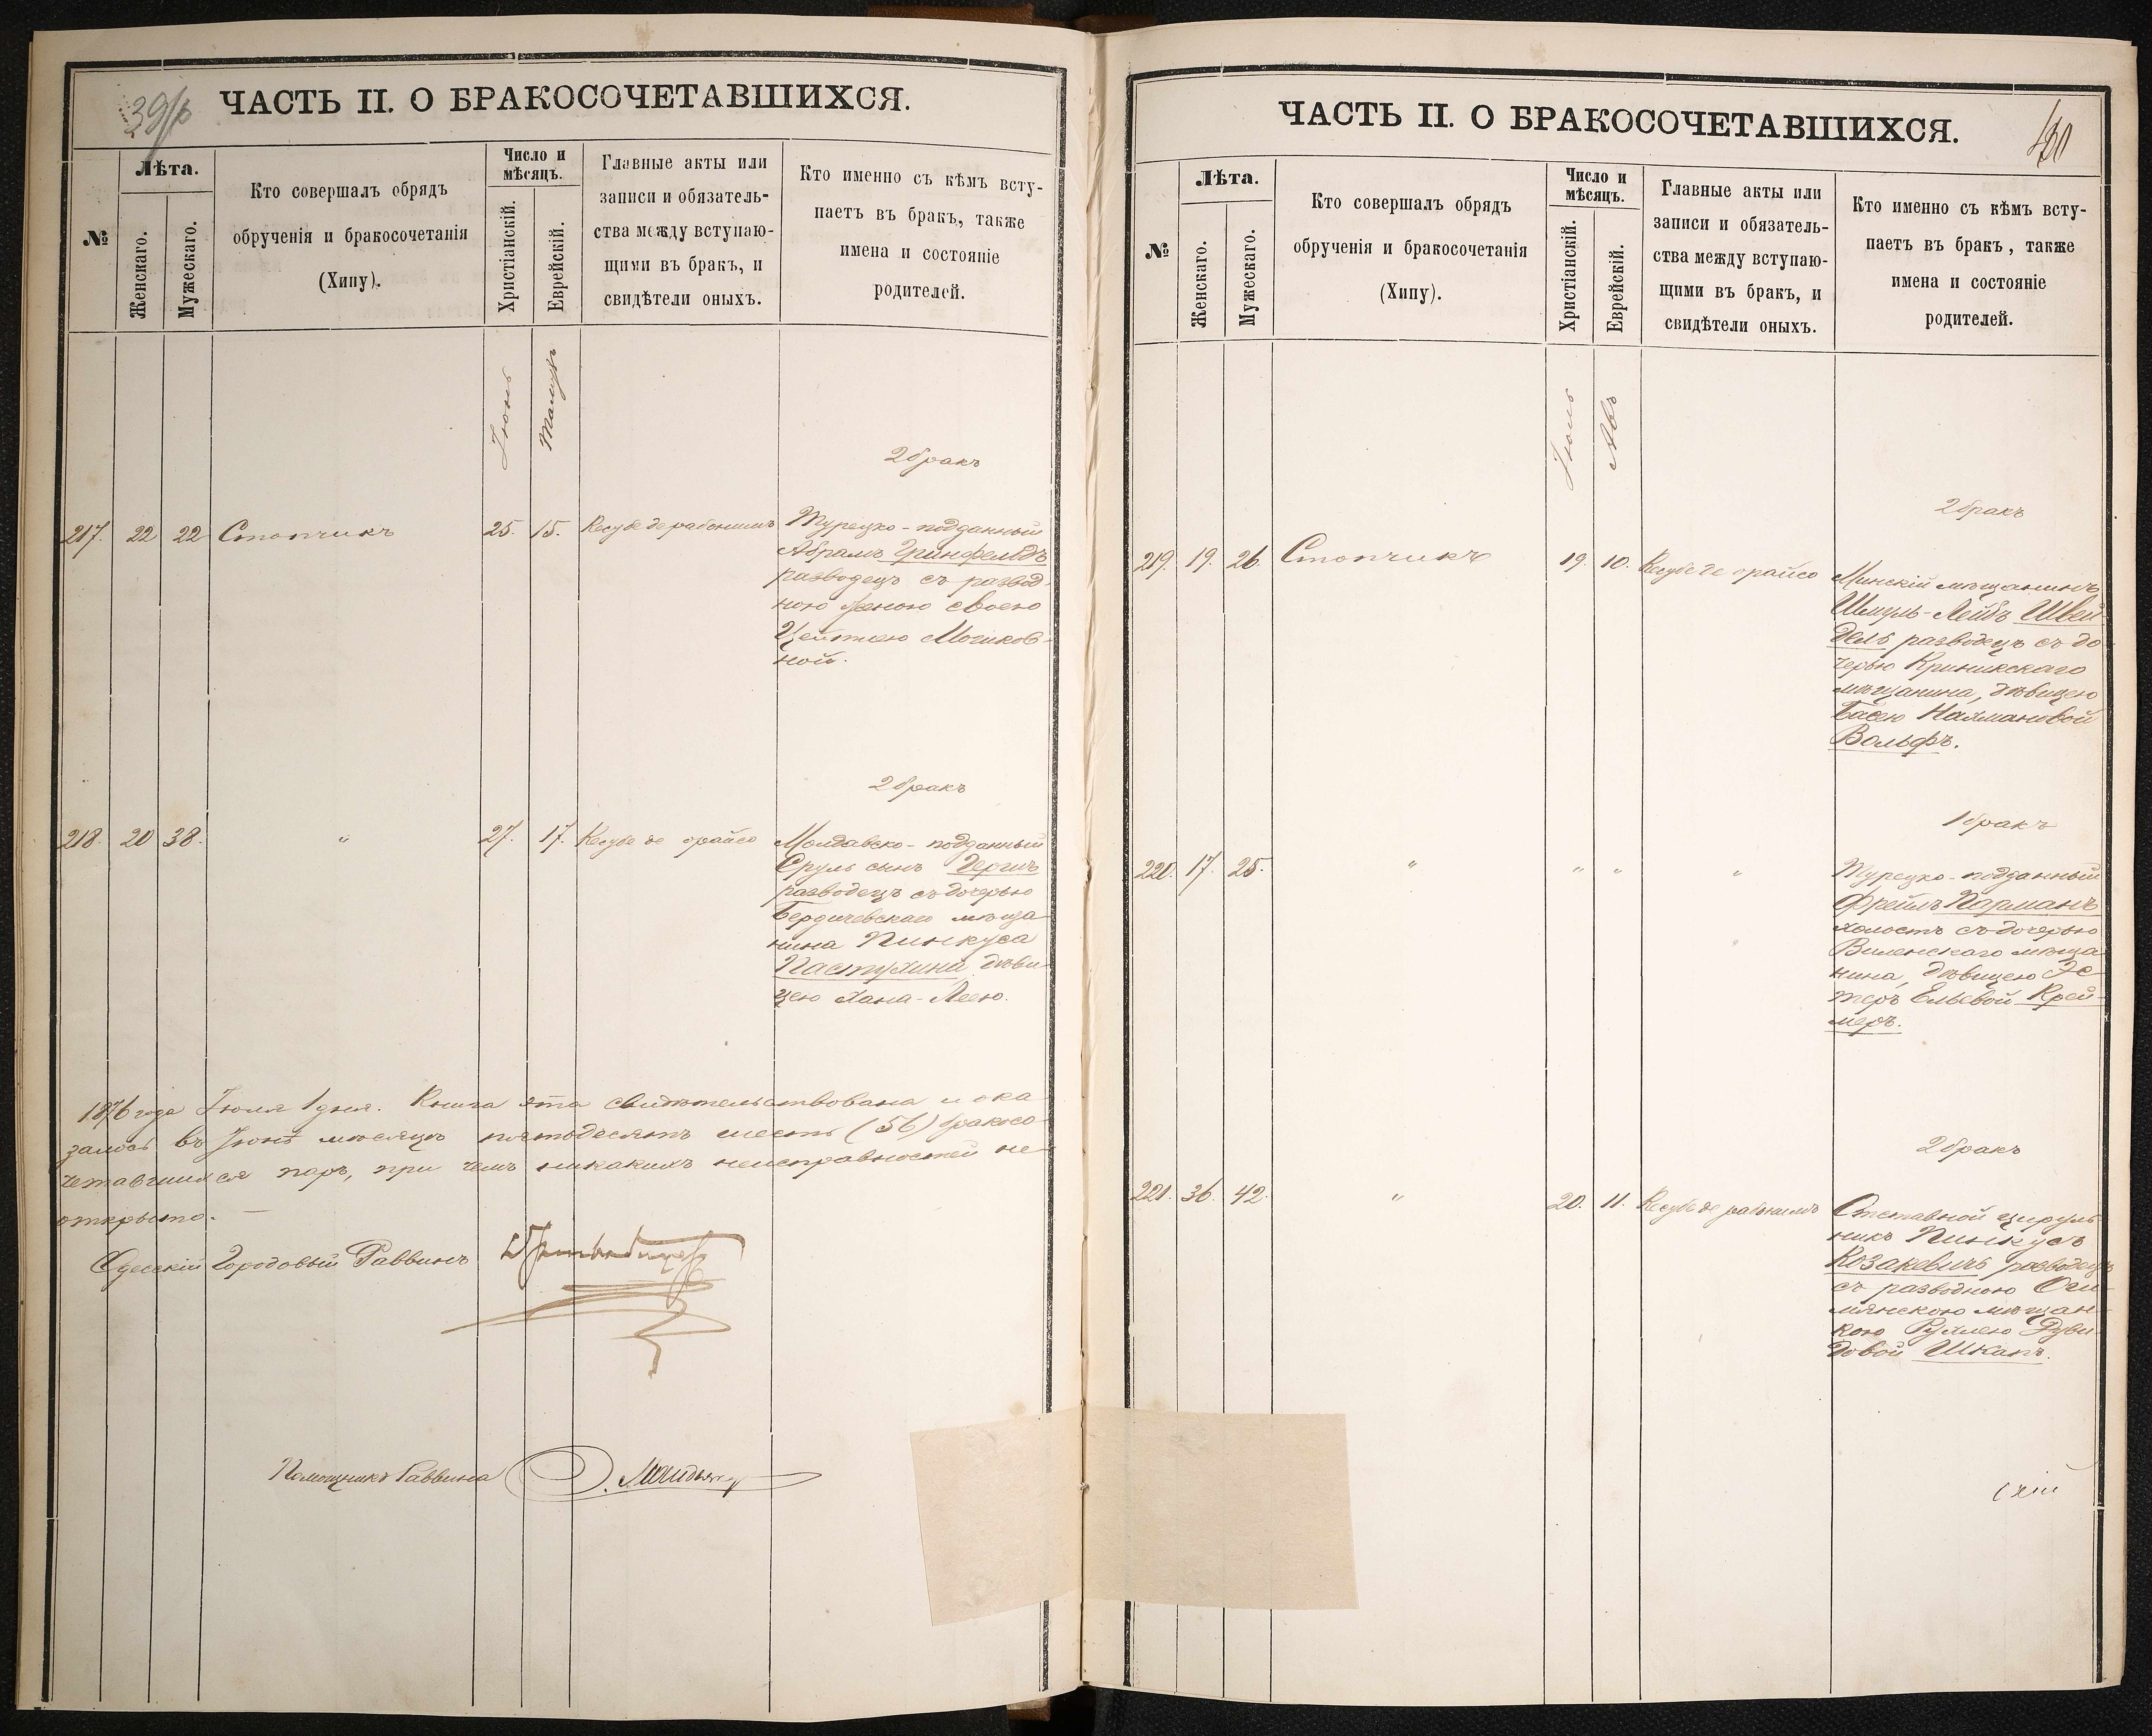 39/б
ЧАСТЬ II. О БРАКОСОЧЕТАВШИХСЯ.
№
Лѣта.
Женскаго.
Мужескаго.
Кто совершалъ обрядъ
обрученія и бракосочетанія
(Хипу).
Число и
мѣсяцъ.
Христіанскій.
Еврейскій.
Главные акты или
записи и обязатель-
ства между вступаю-
щими въ бракъ, и
свидѣтели оныхъ.
Кто именно съ кѣмъ всту-
паетъ въ бракъ, также
имена и состояніе
родителей.
Іюнь
Тамузъ
2 бракъ
217. 22 22 Стопчикъ 25. 15. Кесубе дерабонимъ
Турецко-подданный
Абрамъ Гринфельдъ
разводецъ съ развод-
ною женою своею
Цейтлею Мошков-
ной.
2 бракъ
218. 20 38. " 27. 17. Кесубе де орайсо
Молдавско-подданный
Сруль сынъ Герша
разводецъ съ дочерью
Бердичевскаго мѣща
нина Пинкуса
Пастухина, дѣви-
цею Хана-Леею.
1876 года Іюля 1 дня. Книга эта свидѣтельствована и ока
залось въ Іюнѣ мѣсяцѣ пятьдесятъ шесть (56) бракосо-
четавшихся паръ, при чемъ никакихъ неисправностей не
открыто.
Одесскій Городовый Раввинъ
Помощникъ Раввина
ЧАСТЬ II. О БРАКОСОЧЕТАВШИХСЯ.
40
№
Лѣта.
Женскаго.
Мужескаго.
Кто совершалъ обрядъ
обрученія и бракосочетанія
(Хипу).
Число и
мѣсяцъ.
Христіанскій.
Еврейскій.
Главные акты или
записи и обязатель-
ства между вступаю-
щими въ бракъ, и
свидѣтели оныхъ.
Кто именно съ кѣмъ всту-
паетъ въ бракъ, также
имена и состояніе
родителей.
Іюль
Абъ
2 бракъ
219. 19. 26. Стопчикъ 19. 10. Кесубе де орайсо
Минскій мѣщанинъ
Шмуль-Лейбъ Швей-
дель разводецъ съ до-
черью Кринскскаго
мѣщанина, дѣвицею
Басею Нахмановой
Вольфъ.
1 бракъ
220. 17. 25. " " " "
Турецко-подданный
Фреймъ Парманъ
холостъ съ дочерью
Виленскаго мѣща
нина, дѣвицею Эс-
теръ Ельевой Крей-
меръ.
2 бракъ
221. 36. 42. " 20. 11. Кесубе де рабонимъ
Отставной цируль
никъ Пинкусъ
Козакевичъ разводецъ
съ разводною Ош-
мянскою мѣщан-
кою Рухлею Дуви-
довой Шкапъ.